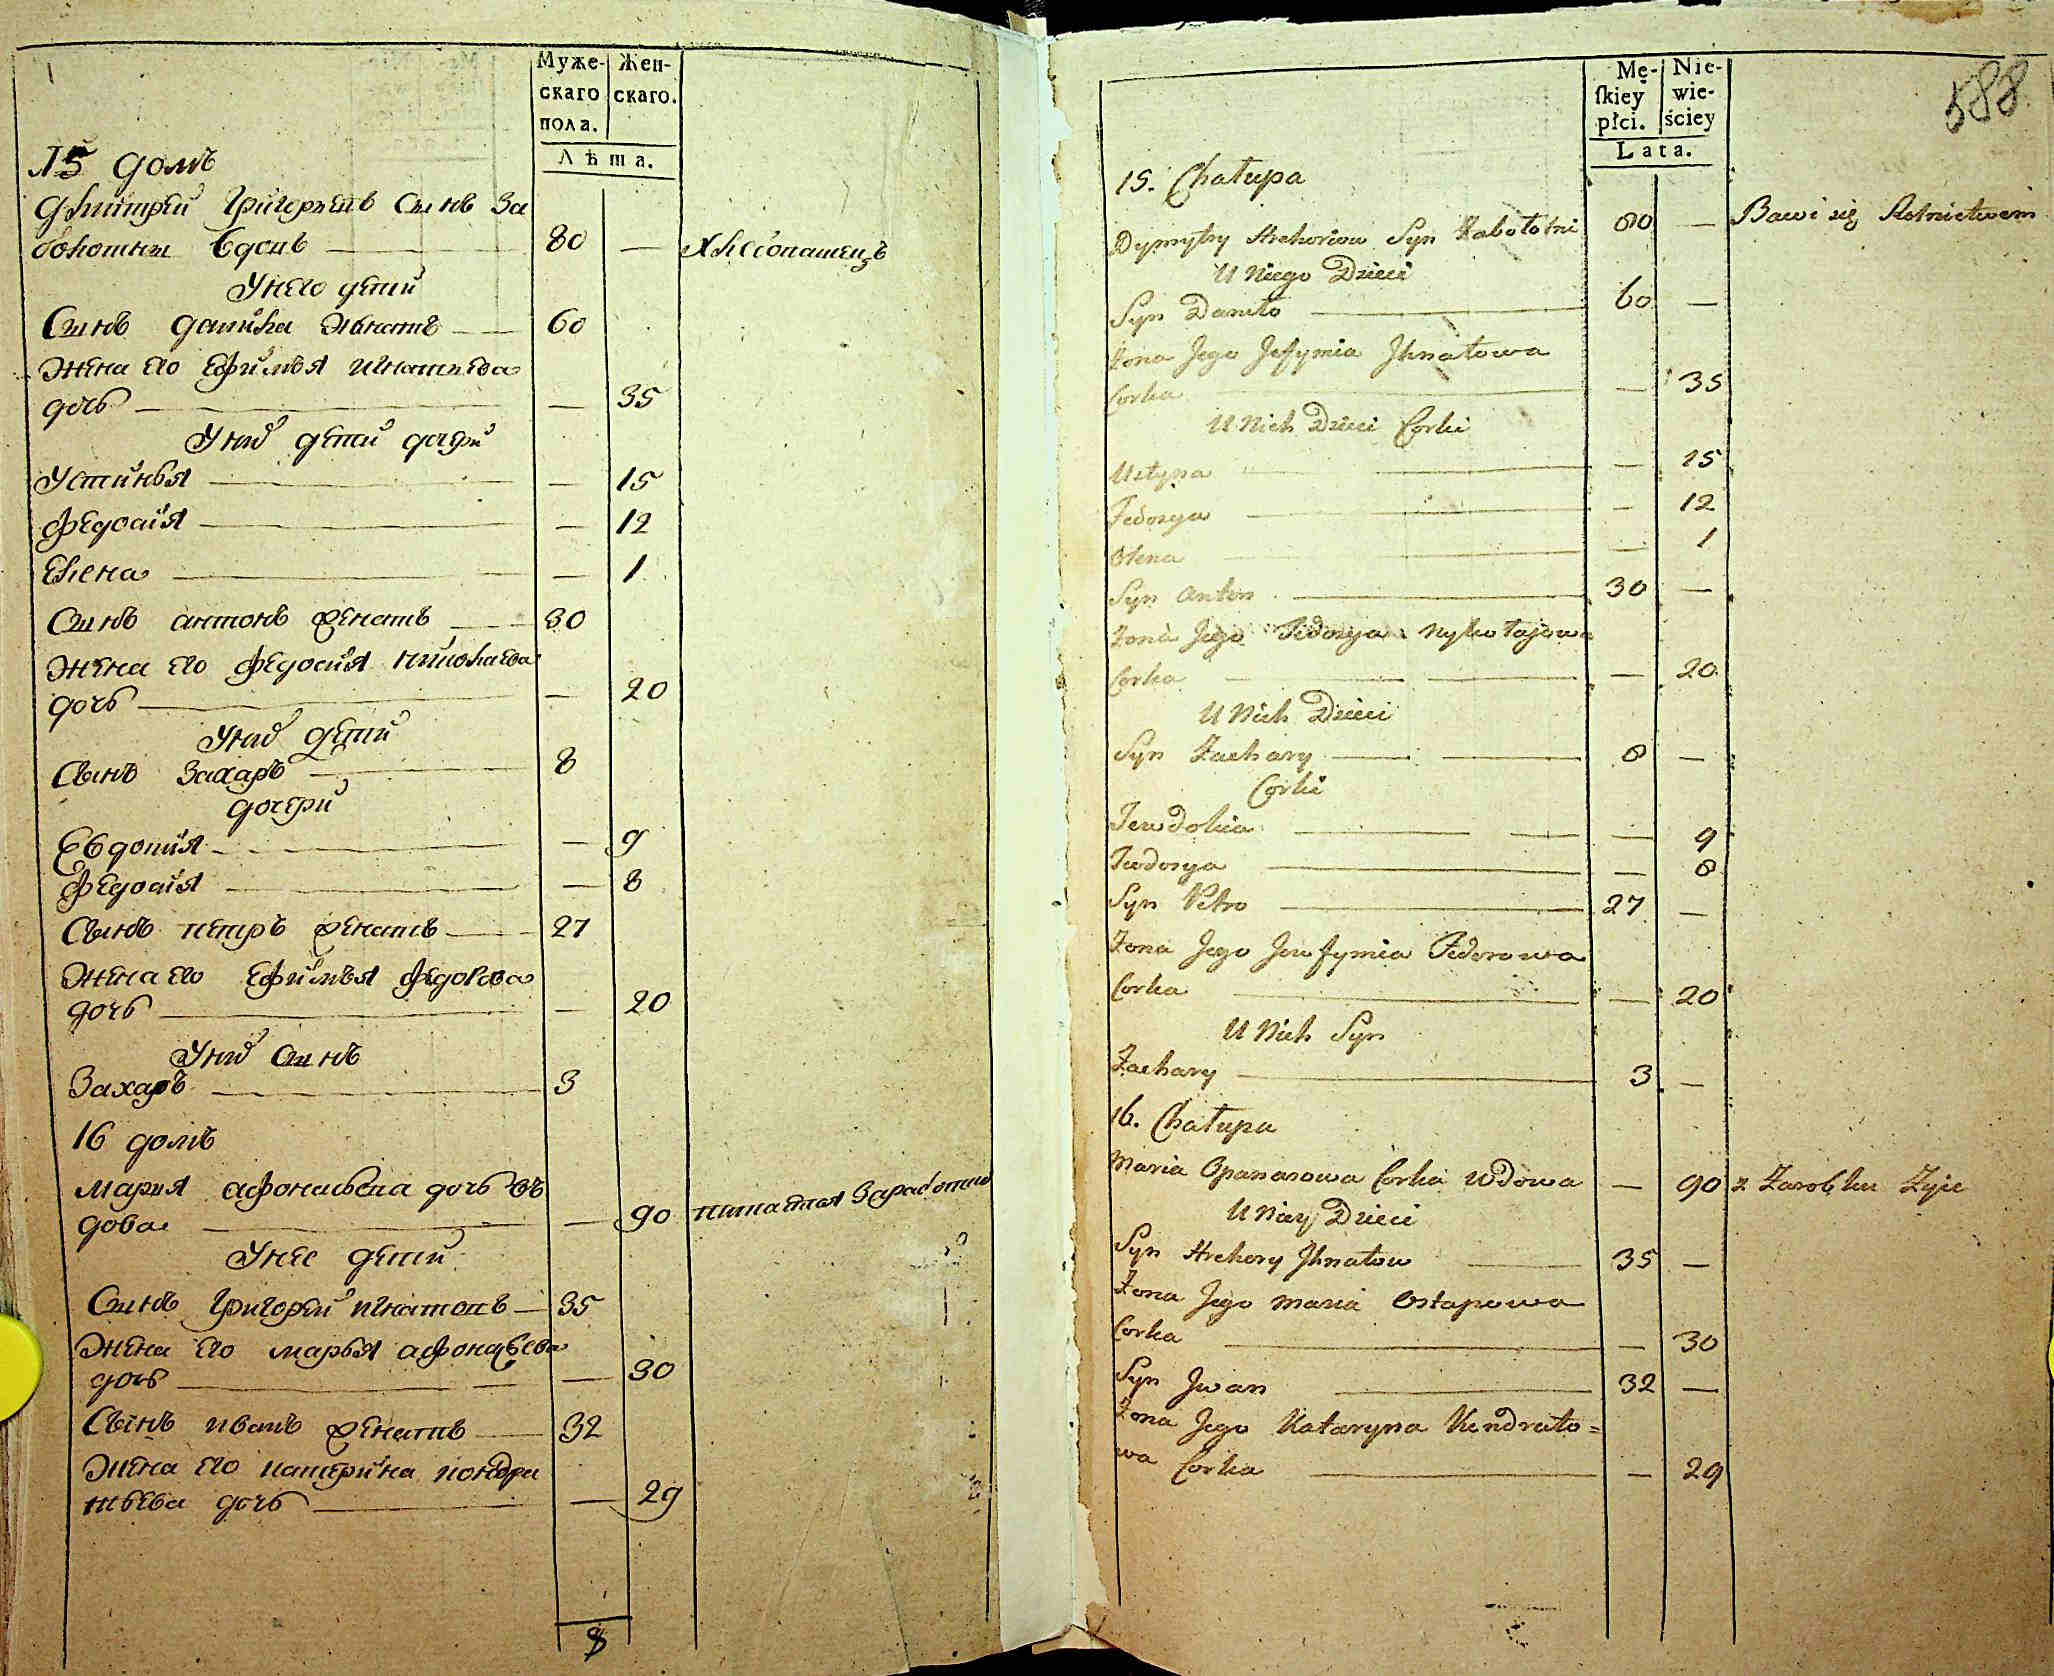 Муже-
скаго
пола.
Жен-
скаго.
Лѣта.
15 домъ
Дмитрей Григорьевъ сынъ За
болотны вдовъ — 80 — Хлебопашецъ
У него дети
Сынъ данила женатъ — 60
Жена его Ефимья игнатьева
дочь — — 35
У них дети дочери
Устинья — — 15
Федосия — — 12
Елена — — 1
Сынъ антонъ женатъ — 30
Жена его федосия николаева
дочь — — 20
У них дети
Сынъ Захаръ — 8
дочери
Евдокия — — 9
Федосия — — 8
Сынъ петръ женатъ — 27
Жена его Ефимья федорова
дочь — — 20
У них сынъ
Захаръ — 3
16 домъ
мария афонасьева дочь въ
дова — — 90 питается Заработком
У нее дети
Сынъ григорей игнатовъ — 35
Жена его марья афонасьева
дочь — — 30
Сынъ иванъ женатъ — 32
Жена его катерина кондра
тьева дочь — — 29
8
588
Mę-
ſkiey
płci.
Nie-
wie-
ściey
Lata.
15. Chałupa
Dymytry Hrehoriow Syn Zabołotni 80 — Bawi się Rolnictwem
U Niego Dzieci
Syn Daniło — 60 —
Żona Jego Jefymia Jhnatowa
Corka — — 35
U Nich Dzieci Corki
Ustyna — — 15
Fedosya — — 12
Olena — — 1
Syn Anton — 30 —
Żona Jego Fedosya Nykołajowa
Corka — — 20
U Nich Dzieci
Syn Zachary — 8 —
Corki
Jewdokia — — 9
Fedosya — — 8
Syn Petro — 27 —
Żona Jego Jewfymia Fedorowa
Corka — — 20
U Nich Syn
Zachary — 3 —
16. Chałupa
Maria Opanasowa Corka Wdowa — 90 z Zarobku Żyie
U Niey Dzieci
Syn Hrehory Jhnatow — 35 —
Żona Jego Maria Ostapowa
Corka — — 30
Syn Jwan — 32 —
Żona Jego Kataryna Kendrato=
wa Corka — — 29